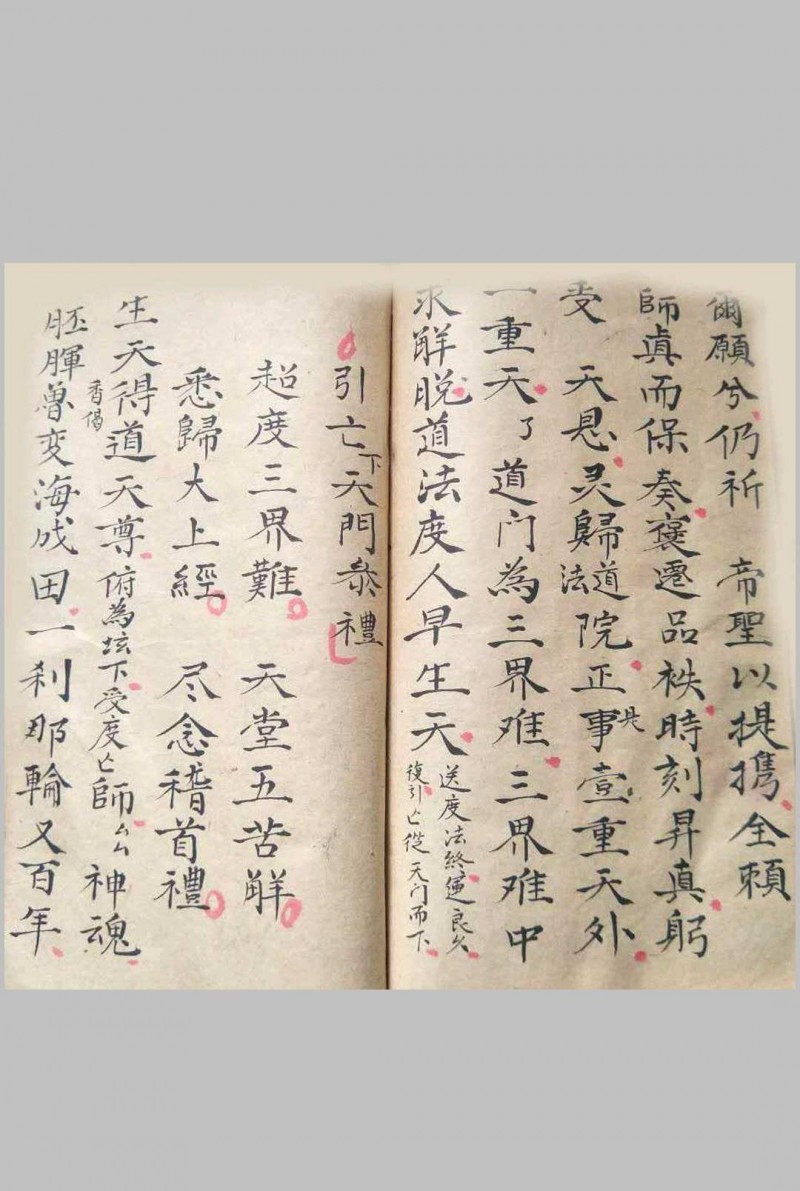 爾願兮仍祈　帝聖以提携全賴
師真而保奏褒遷品袟時刻昇真躬
受　天恩灵歸道法院正事是壹重天外
一重天了道门為三界难三界难中
求解脱道法度人早生天送度法終運良久復引亡從天门而下
引亡下天門叅禮
超度三界難　天堂五苦解
悉歸大上經　尽念稽首禮
生天得道天尊俯為坛下受度亡師厶厶神魂
香偈
胚腪兽变海成田一刹那輪又百年